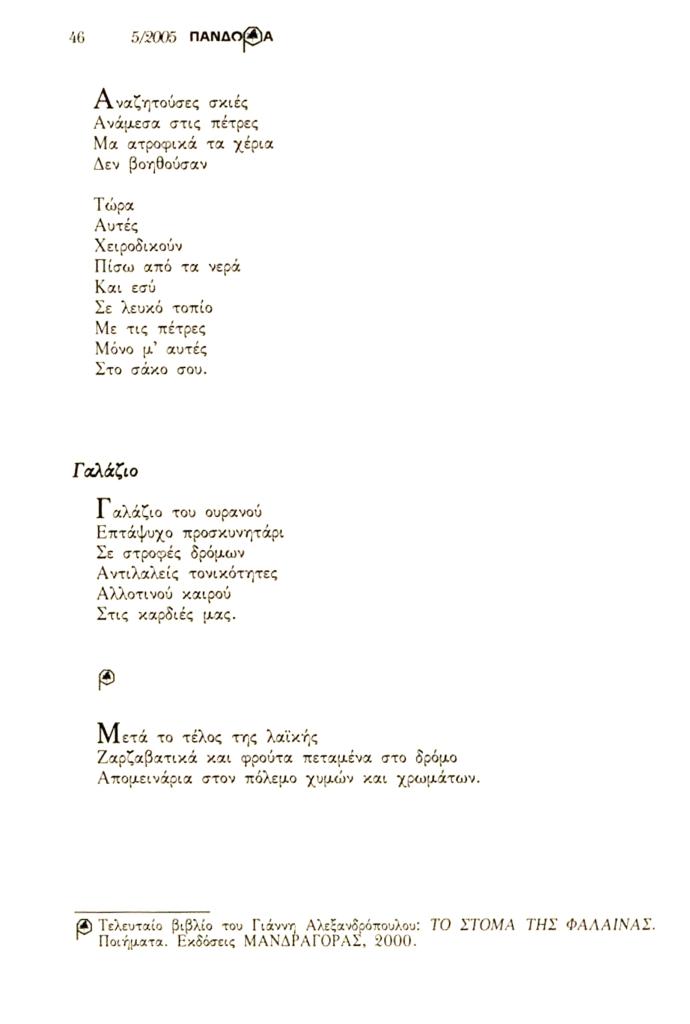 46 5/2005 ΠΑΝΔΟΡΑ
Αναζητούσες σκιές
Ανάμεσα στις πέτρες
Μα ατροφικά τα χέρια
Δεν βοηθούσαν
Τώρα
Αυτές
Χειροδικούν
Πίσω από τα νερά
Και εσύ
Σε λευκό τοπίο
Με τις πέτρες
Μόνο μ' αυτές
Στο σάκο σου.
Γαλάζιο
Γαλάζιο του ουρανού
Επτάψυχο προσκυνητάρι
Σε στροφές δρόμων
Αντιλαλείς τονικότητες
Αλλοτινού καιρού
Στις καρδιές μας.
Μετά το τέλος της λαϊκής
Ζαρζαβατικά και φρούτα πεταμένα στο δρόμο
Απομεινάρια στον πόλεμο χυμών και χρωμάτων.
Τελευταίο βιβλίο του Γιάννη Αλεξανδρόπουλου: ΤΟ ΣΤΟΜΑ ΤΗΣ ΦΑΛΑΙΝΑΣ.
Ποιήματα. Εκδόσεις ΜΑΝΔΡΑΓΟΡΑΣ, 2000.